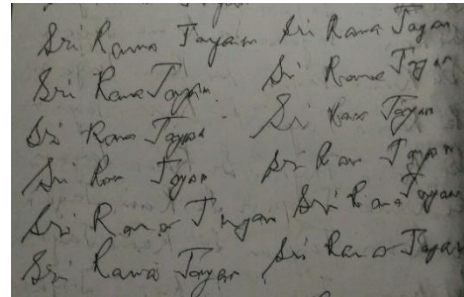 Sri Rama Jayam Sri Rama Jayam
Sri Rama Jayam Sri Rama Jayam
Sri Rama Jayam Sri Rama Jayam
Sri Ram Jayam Sri Ram Jayam
Sri Rama Jayam Sri Rama Jayam
Sri Rama Jayam Sri Rama Jayam